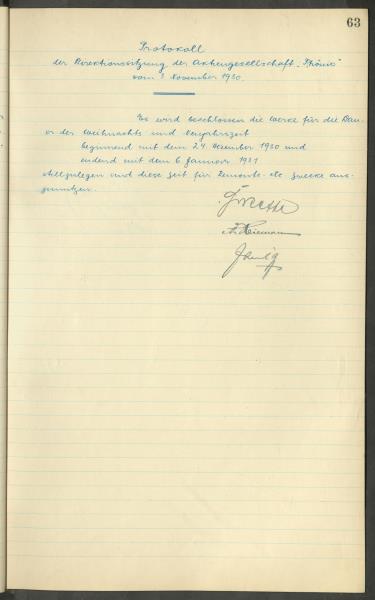 63
Protokoll
der Direktionssitzung der Aktiengesellschaft "Phönix"
vom 3 November 1930.
Es wird beschlossen die Werke für die Dau-
er der Weihnachts und Neujahrszeit
beginnend mit dem 24. Dezember 1930 und
endend mit dem 6 Januar 1931
stillzulegen und diese Zeit für Remonte- etc Zwecke aus-
zunutzen.